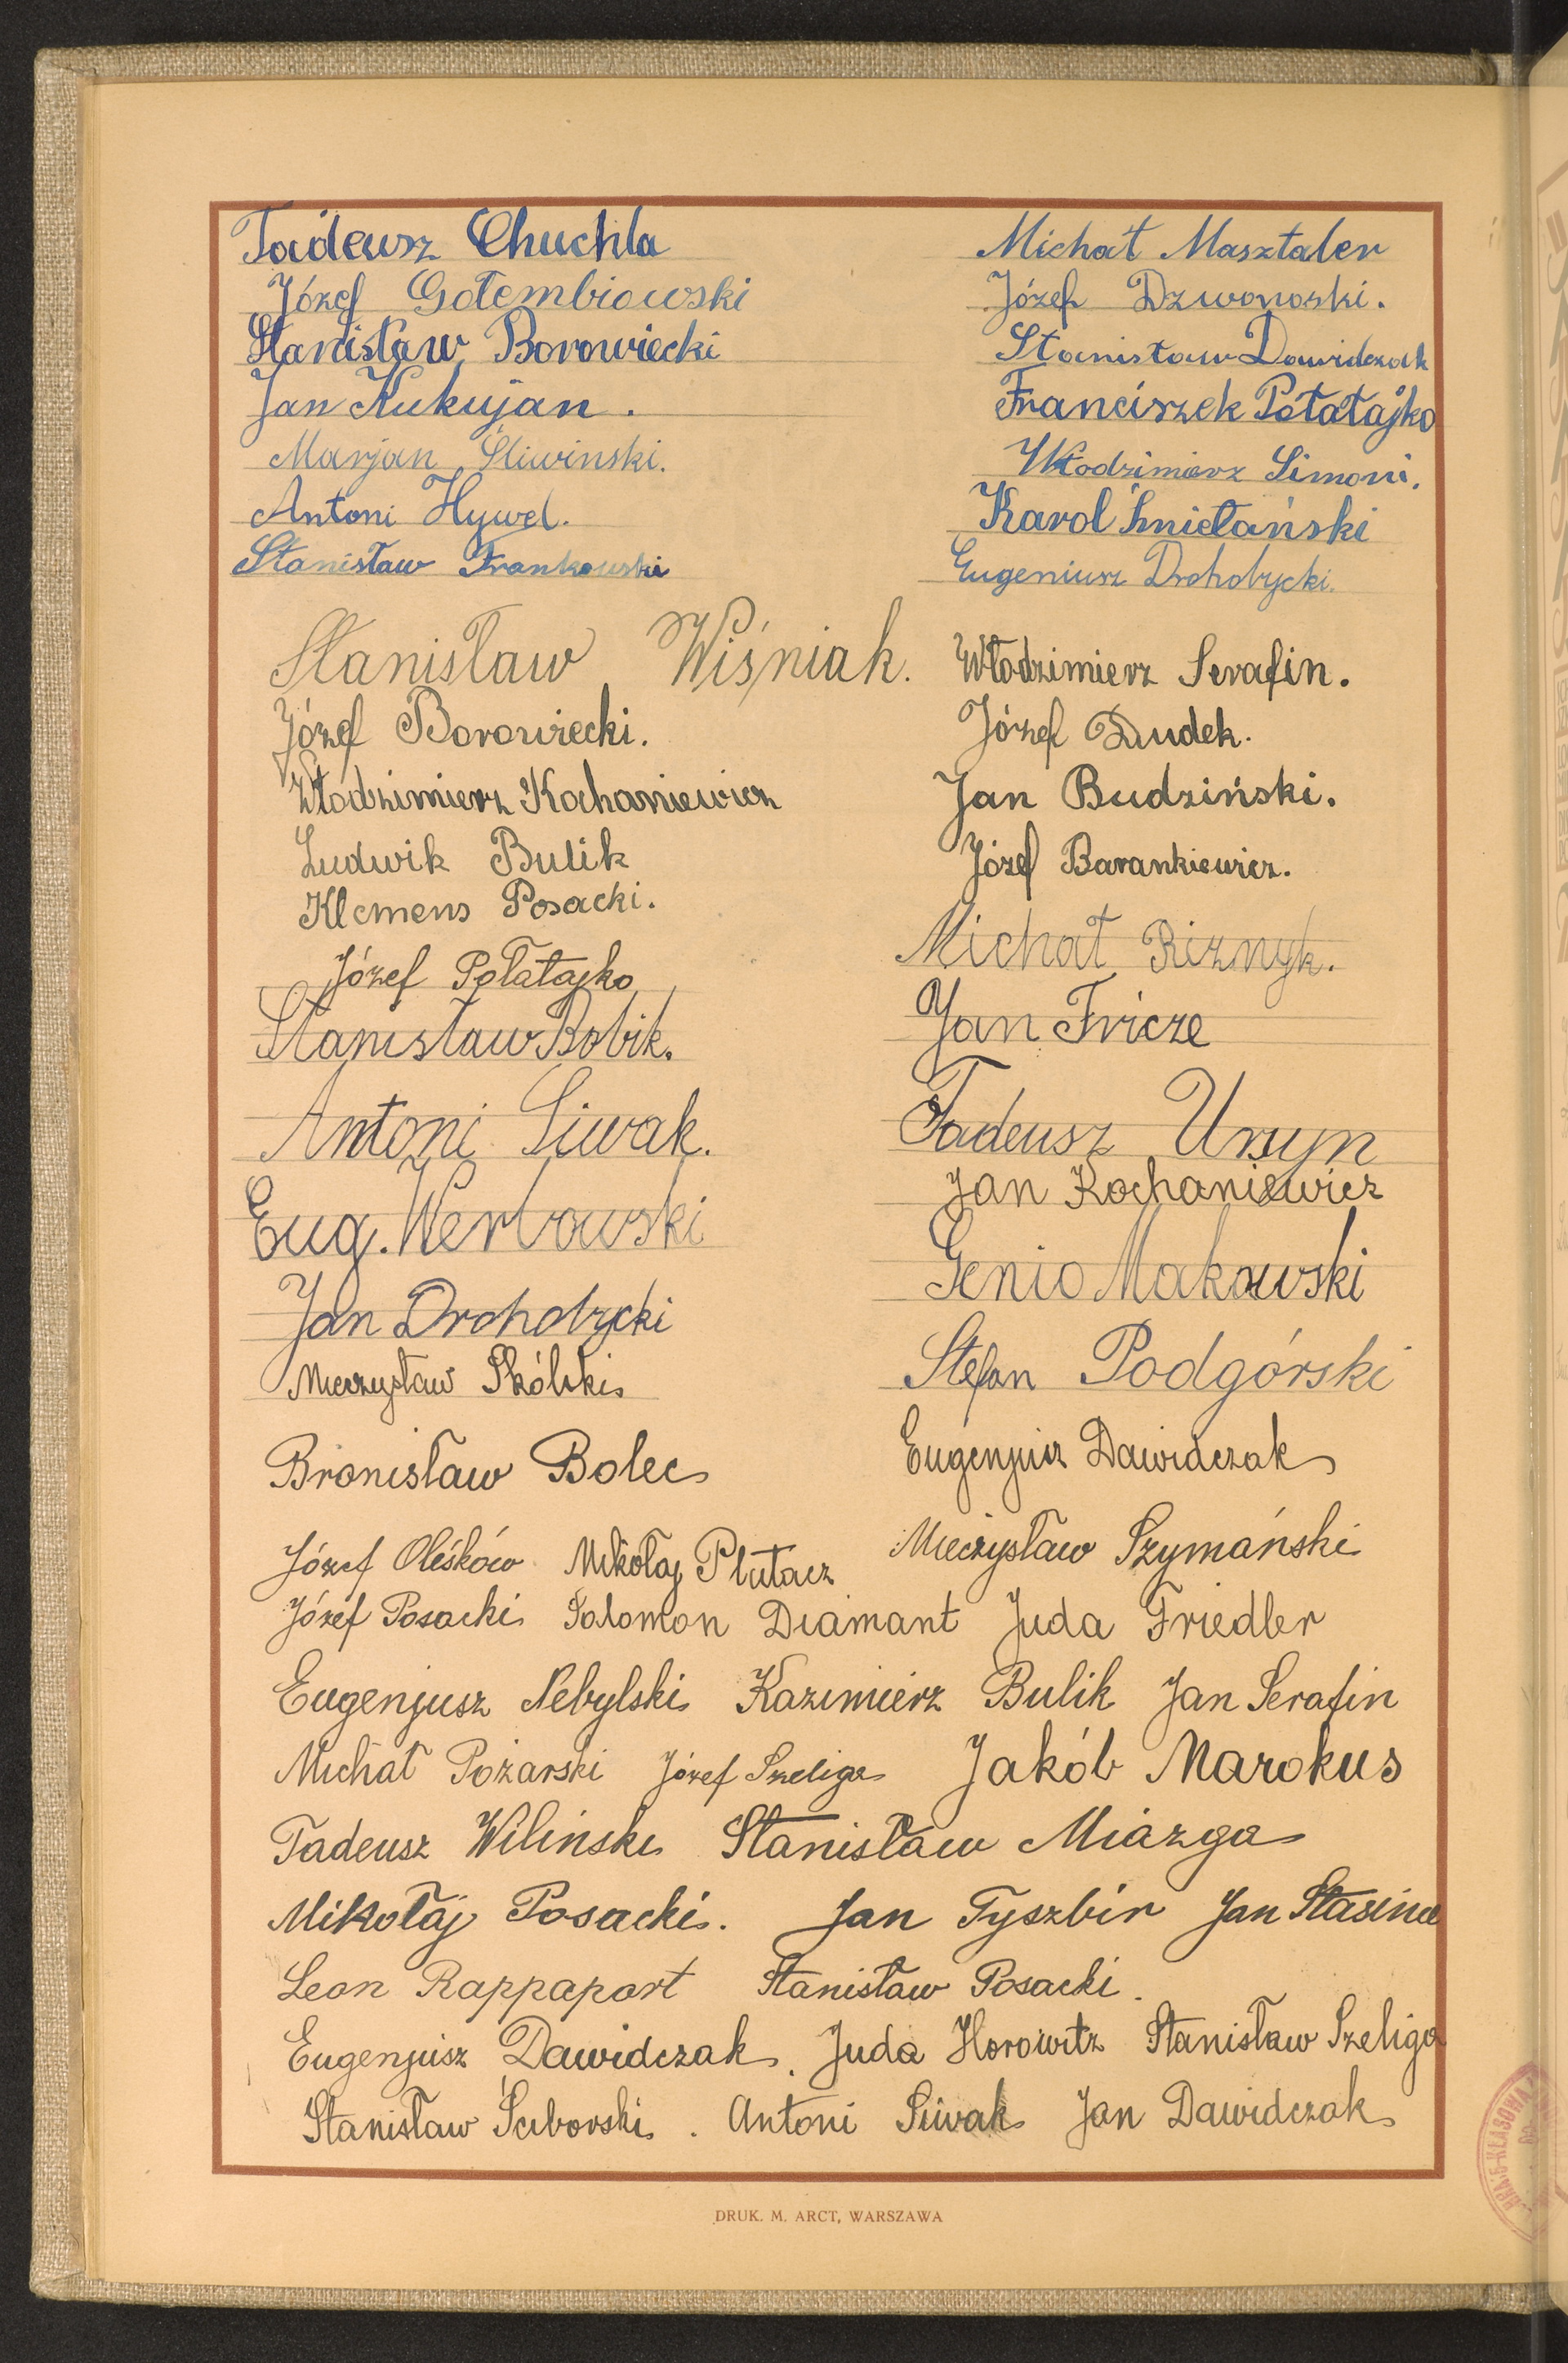 Tadeusz Chuchla Michał Masztaler
Józef Gołembiowski Józef Dzwonoski.
Stanisław Borowiecki Stanisław Dawidczak
Jan Kukujan. Franciszek Połatajko
Marjan Śliwinski. Włodzimierz Simoni.
Antoni Hywel. Karol Śmietański
Stanisław Frankowski Eugeniusz Drohobycki.
Stanisław Wiśniak. Włodzimierz Serafin.
Józef Borowiecki. Józef Dudek.
Włodzimierz Kochaniewicz Jan Budziński.
Ludwik Bulik Józef Barankiewicz.
Klemens Posacki. Michał Riznyk.
Józef Połatajko Jan Fricze
Stanisław Bobik. Tadeusz
Antoni Siwak. Jan Kochaniewicz
Eug. Werbowski Genio Makowski
Jan Drohobycki Stefan Podgórski
Mieczysław Skólski Eugenjusz Dawidczak
Bronisław Bolec Mieczysław Szymański
Józef Oleśków Mikołaj Plutacz
Józef Posacki Salomon Diamant Juda Friedler
Eugenjusz Nebylski Kazimierz Bulik Jan Serafin
Michał Pożarski Józef Szeliga Jakób Marokus
Tadeusz Wilinski Stanisław Miazga
Mikołaj Posacki. Jan Tyszbir Jan Stasina
Leon Rappaport Stanisław Posacki.
Eugenjusz Dawidczak. Juda Horowitz Stanisław Szeliga
Stanisław Ściborski. Antoni Siwak Jan Dawidczak
DRUK. M. ARCT, WARSZAWA